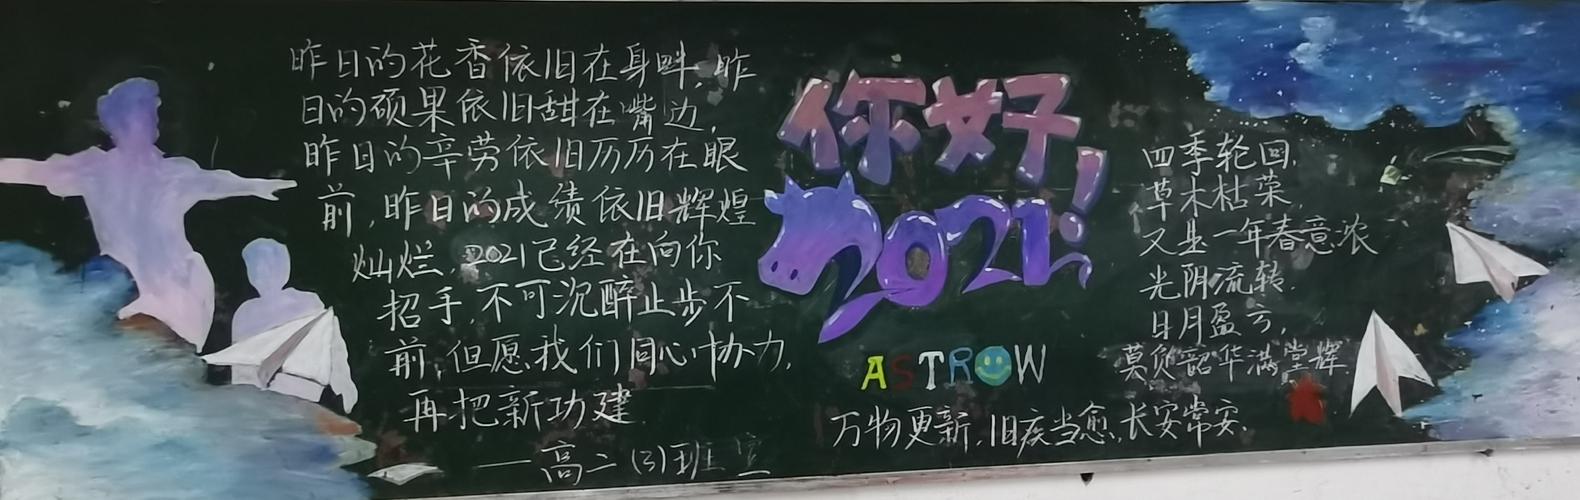 昨日的花香依旧在身畔,昨
日的硕果依旧甜在嘴边,
昨日的辛劳依旧历历在眼
前,昨日的成绩依旧辉煌
灿烂,2021已经在向你
招手,不可沉醉止步不
前,但愿我们同心协力,
再把新功建
——高二(3)班宣
你好!
2021
ASTROW
万物更新,旧疾当愈,长安常安.
四季轮回,
草木枯荣,
又是一年春意浓
光阴流转,
日月盈亏,
莫负韶华满堂辉